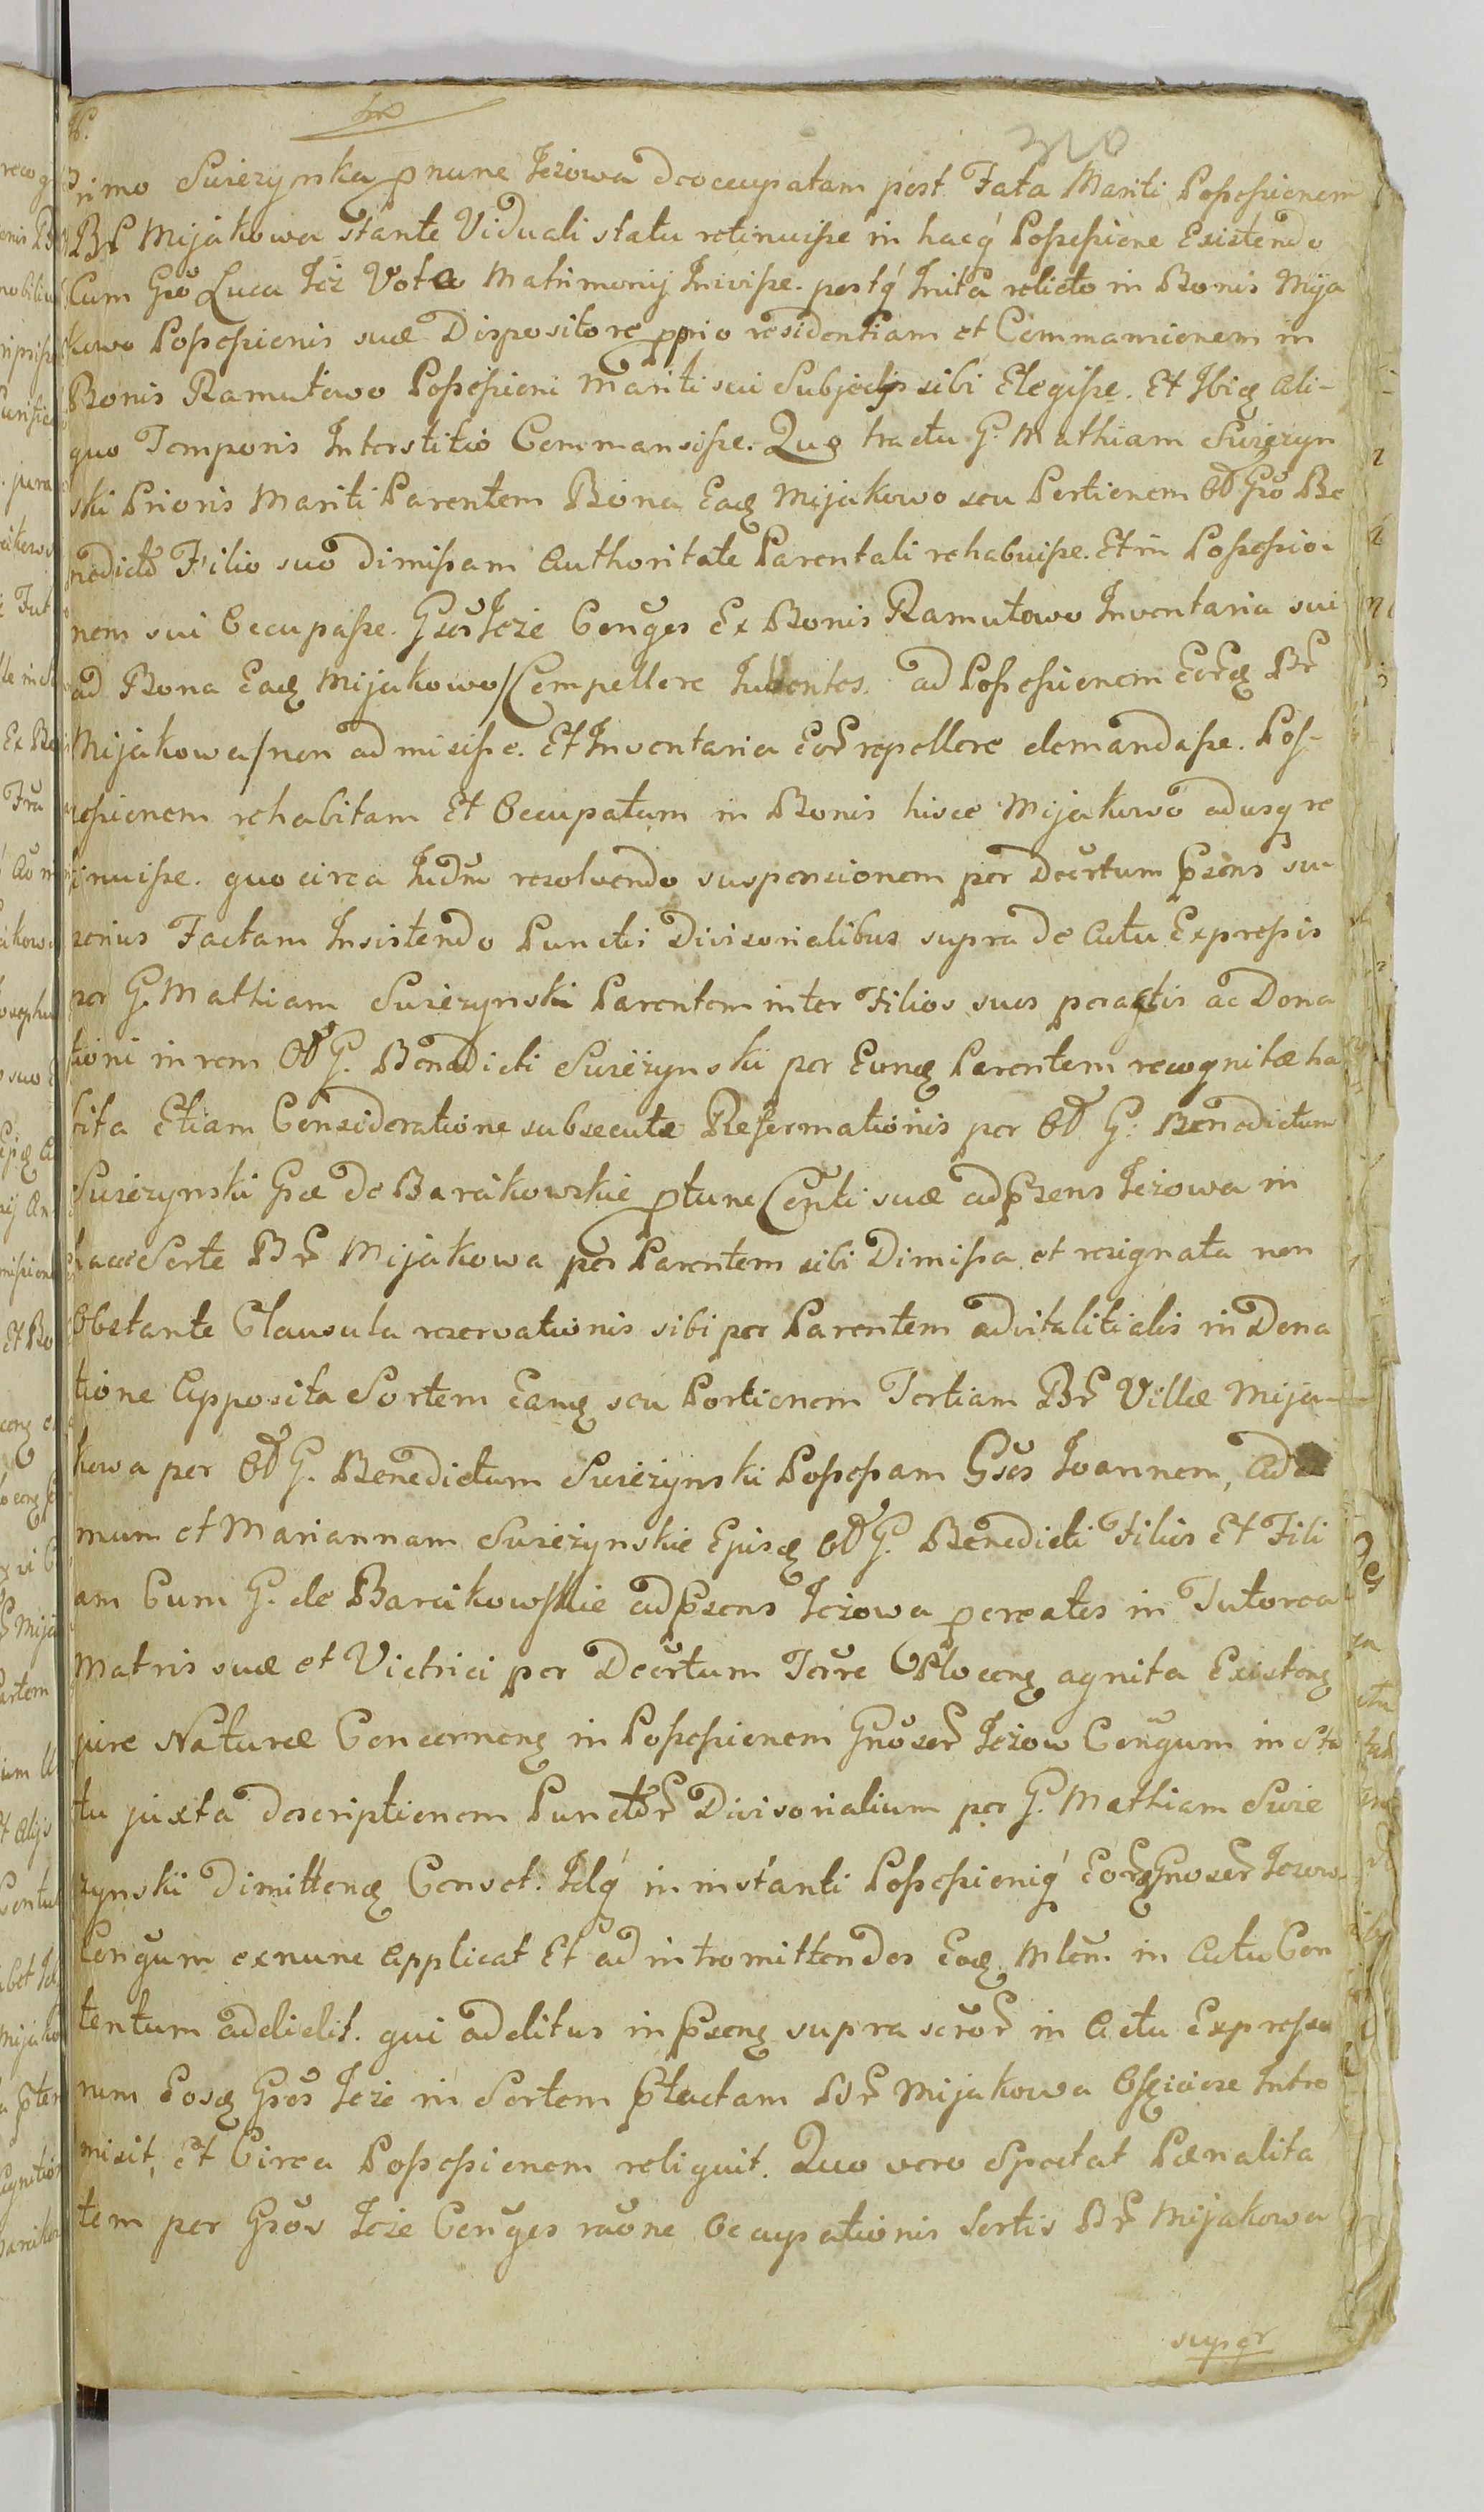 rimo Suzezynska p nunc Jezowa deoccupatam post Fata Mariti Possessionem
BR Mijakowa stante Viduali statu retinuisse in hacq́ Possesione Existendo
Cum Gso Luca Jeż Vota Matrimonij Inivisse. postq́ Inita relicto in Bonis Mija
kowo Possesionis suæ Dispositore pprio residentiam et Commansionem in
Bonis Ramutowo Possesioni Mariti sui Subjectis sibi Elegisse. Et Ibiq Ali-
quo Temporis Interstitio Commansisse. Quo tractu G. Mathiam Suzezyn
ski Prioris Mariti Parentem Bona Eaq Mijakowo seu Portionem Od Gso Be
nedicto Filio suo dimissam Authoritate Parentali rehabuisse. Et in Possessio-
nem sui Occupasse. Gsos Jeże Conges Ex Bonis Ramutowo Inventaria sui
ad Bona Eaq Mijakowo/Compellere Iubentes. ad Possesionem Eorq BR
Mijakowa/non admisisse. Et Inventaria Eor repellere demandasse. Pos-
sesionem rehabitam Et Occupatam in Bonis hisce Mijakowo adusq re
tinuisse. quo circa Iudm resolvendo suspensionem per Decrtum psens su-
perius Factam Insistendo Punctis Divisorialibus supra de Actu Expressis
per G. Mathiam Suzezynski Parentem inter Filios suos peractis ac Dona
tioni in rem Od G. Benedicti Suzezynski per Eunq Parentem recognitæ ha
bita Etiam Consideratione subsecutæ Reformationis per Od G. Benedictum
Suzezynski Gsæ de Barcikowskie ptunc Conti suæ ad psens Jezowa in
hacce Sorte BR Mijakowa per Parentem sibi Dimissa et resignata non
Obstante Clausula reservationis sibi per Parentem advitalitialis in Dona
tione Apposita Sortem Eamq seu Portionem Tertiam BR Villæ Mija-
kowa per Od G. Benedictum Suzezynski Possessam Gsos Joannem, Ada
mum et Mariannam Suzezynskie Ejusq Od G. Benedicti Filios Et Fili
am Cum G. de Barcikowskie ad psens Jezowa pcreatos in Tutorea
Matris suæ et Victrici per Decrtum Terre Plocenq agnita Existenq
jure Naturæ Concernenq in Possesionem Gnosor Jeżow Congum in Sta
tu juxta descriptionem Punctor Divisorialium per G. Mathiam Suze
zynski Dimittenq Censet. Idq́ in instanti Possesioniq́ Eorq Gnosor Jezow
Congum exnunc Applicat Et ad intromittendos Eosq Mlem in Actu Con
tentum addidit. qui additus in psenq supra scror in Actu Expresso
rum Eosq Gsos Jeże in Sortem ptactam BR Mijakowa Officiose Intro
misit, Et Circa Possesionem reliquit. Quo vero Spectat Pænalita
tem per Gsos Jeże Conges raone Occupationis Sortis BR Mijakowa
super